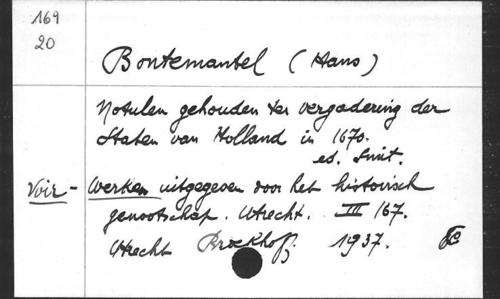 169
20
Bontemantel (Hans)
Notulen gehouden ter vergadering der
Staten van Holland in 1670.
ed. Smit.
Voir - Werken uitgegeven door het historisch
genootschap. Utrecht. III /67.
Utrecht Broekhoff. 1937.